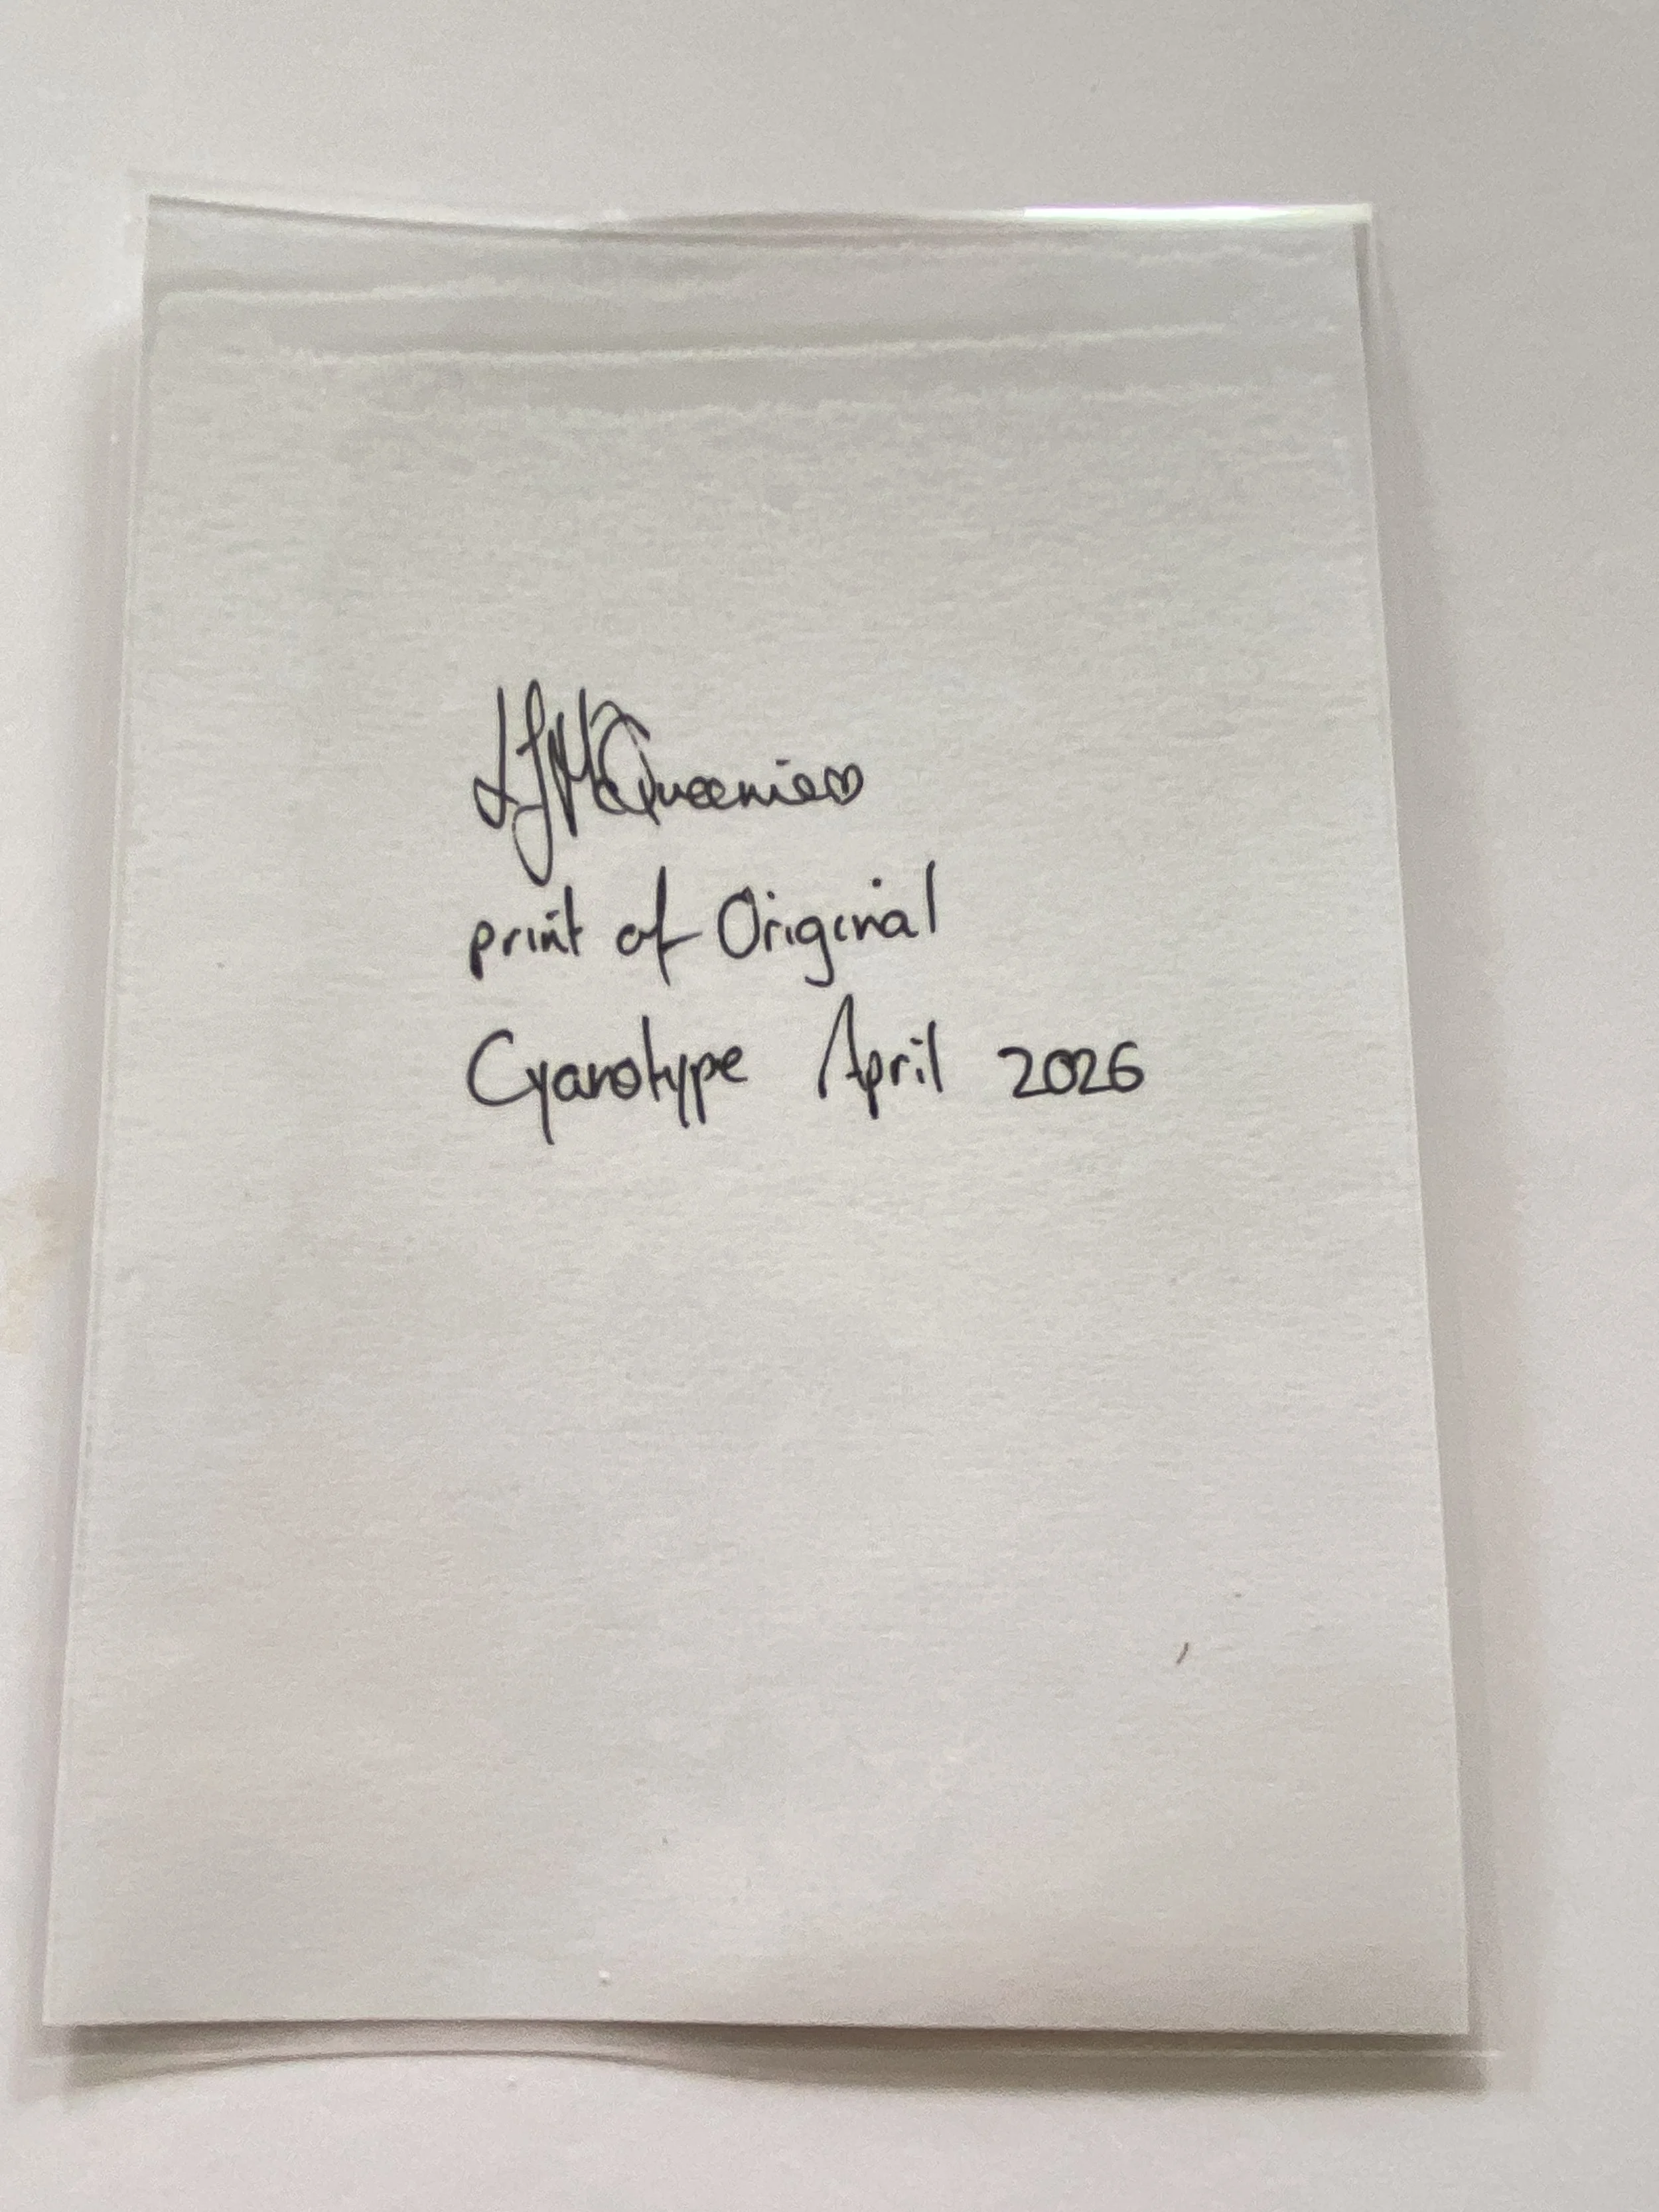 LJMcQueenie♡
print of Original
Cyanotype April 2026